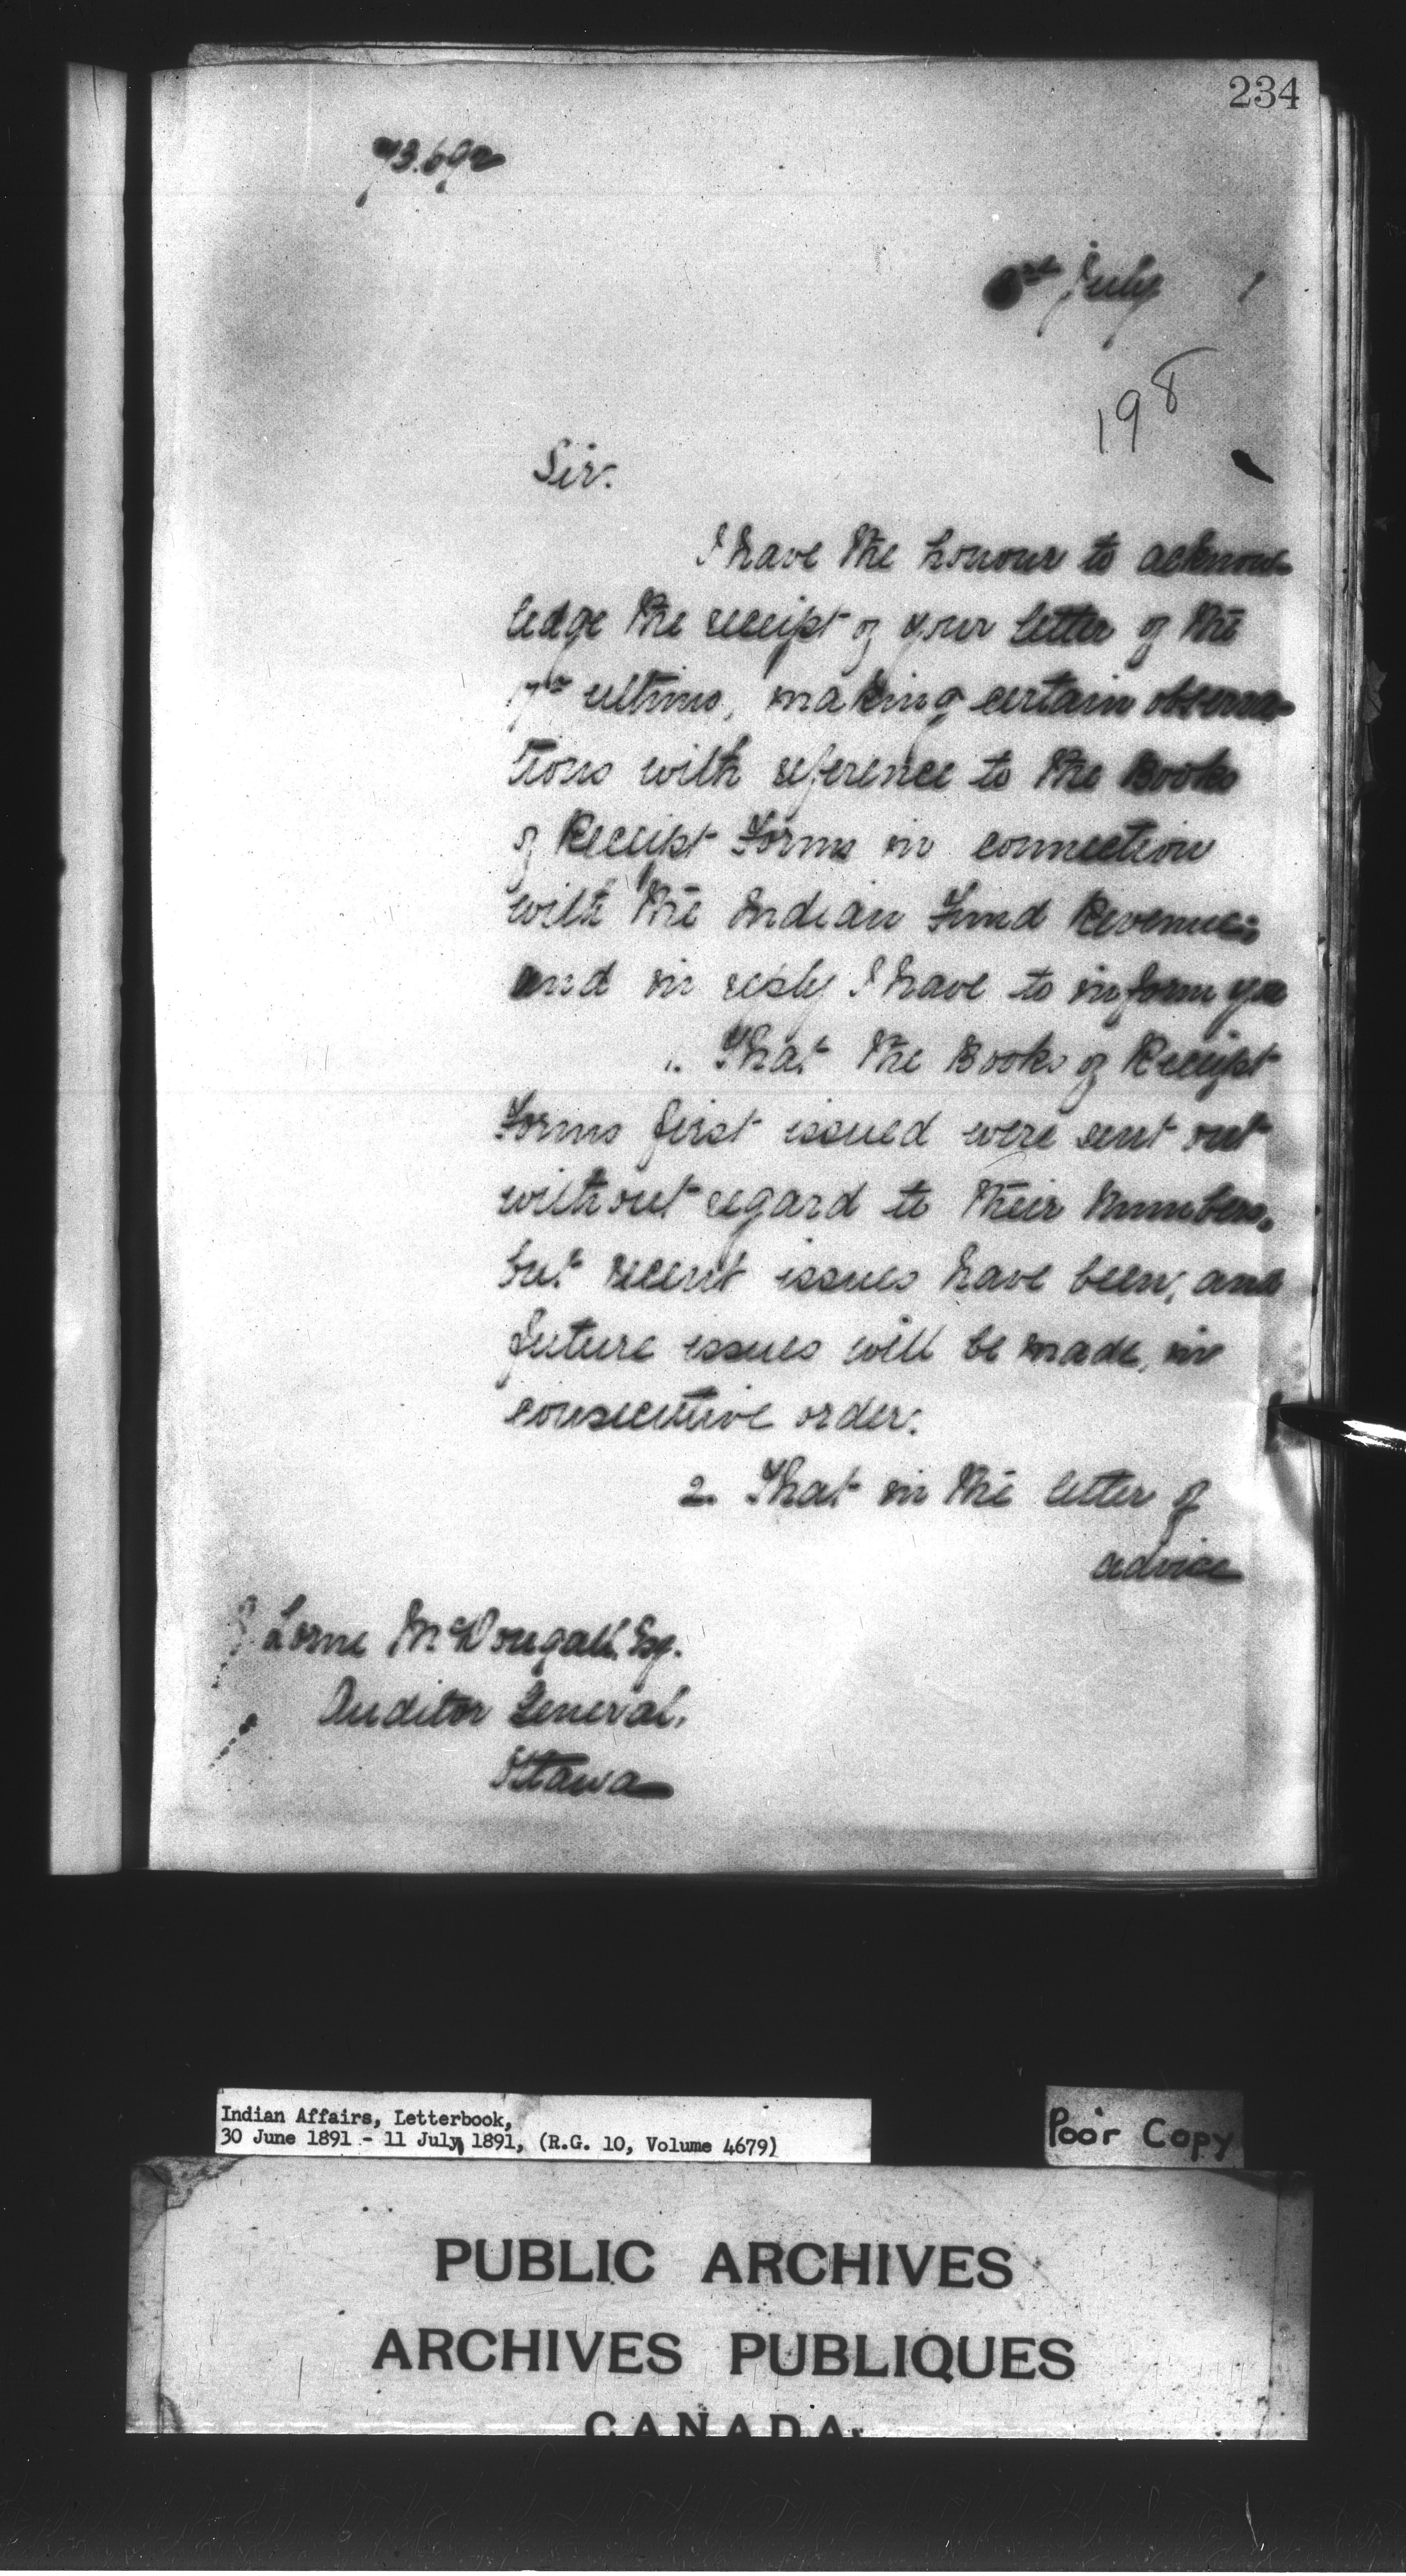 234
73.692
3rd July 1
198
Sir.
I have the honour to acknow-
ledge the receipt of your letter of the
ultimo, making certain observa-
tions with reference to the Books
of Receipt Forms in connection
with the Indian Fund Revenue;
and in reply I have to inform you
1. That the Books of Receipt
Forms first issued were sent out
without regard to their Numbers,
but recent issues have been, and
future issues will be made, in
consecutive order.
2. That in the letter of
advice
J. Lorne McDougall. Esq.
Auditor General,
Ottawa
Indian Affairs, Letterbook,
30 June 1891 - 11 July 1891, (R.G. 10, Volume 4679)
Poor Copy
PUBLIC ARCHIVES
ARCHIVES PUBLIQUES
CANADA